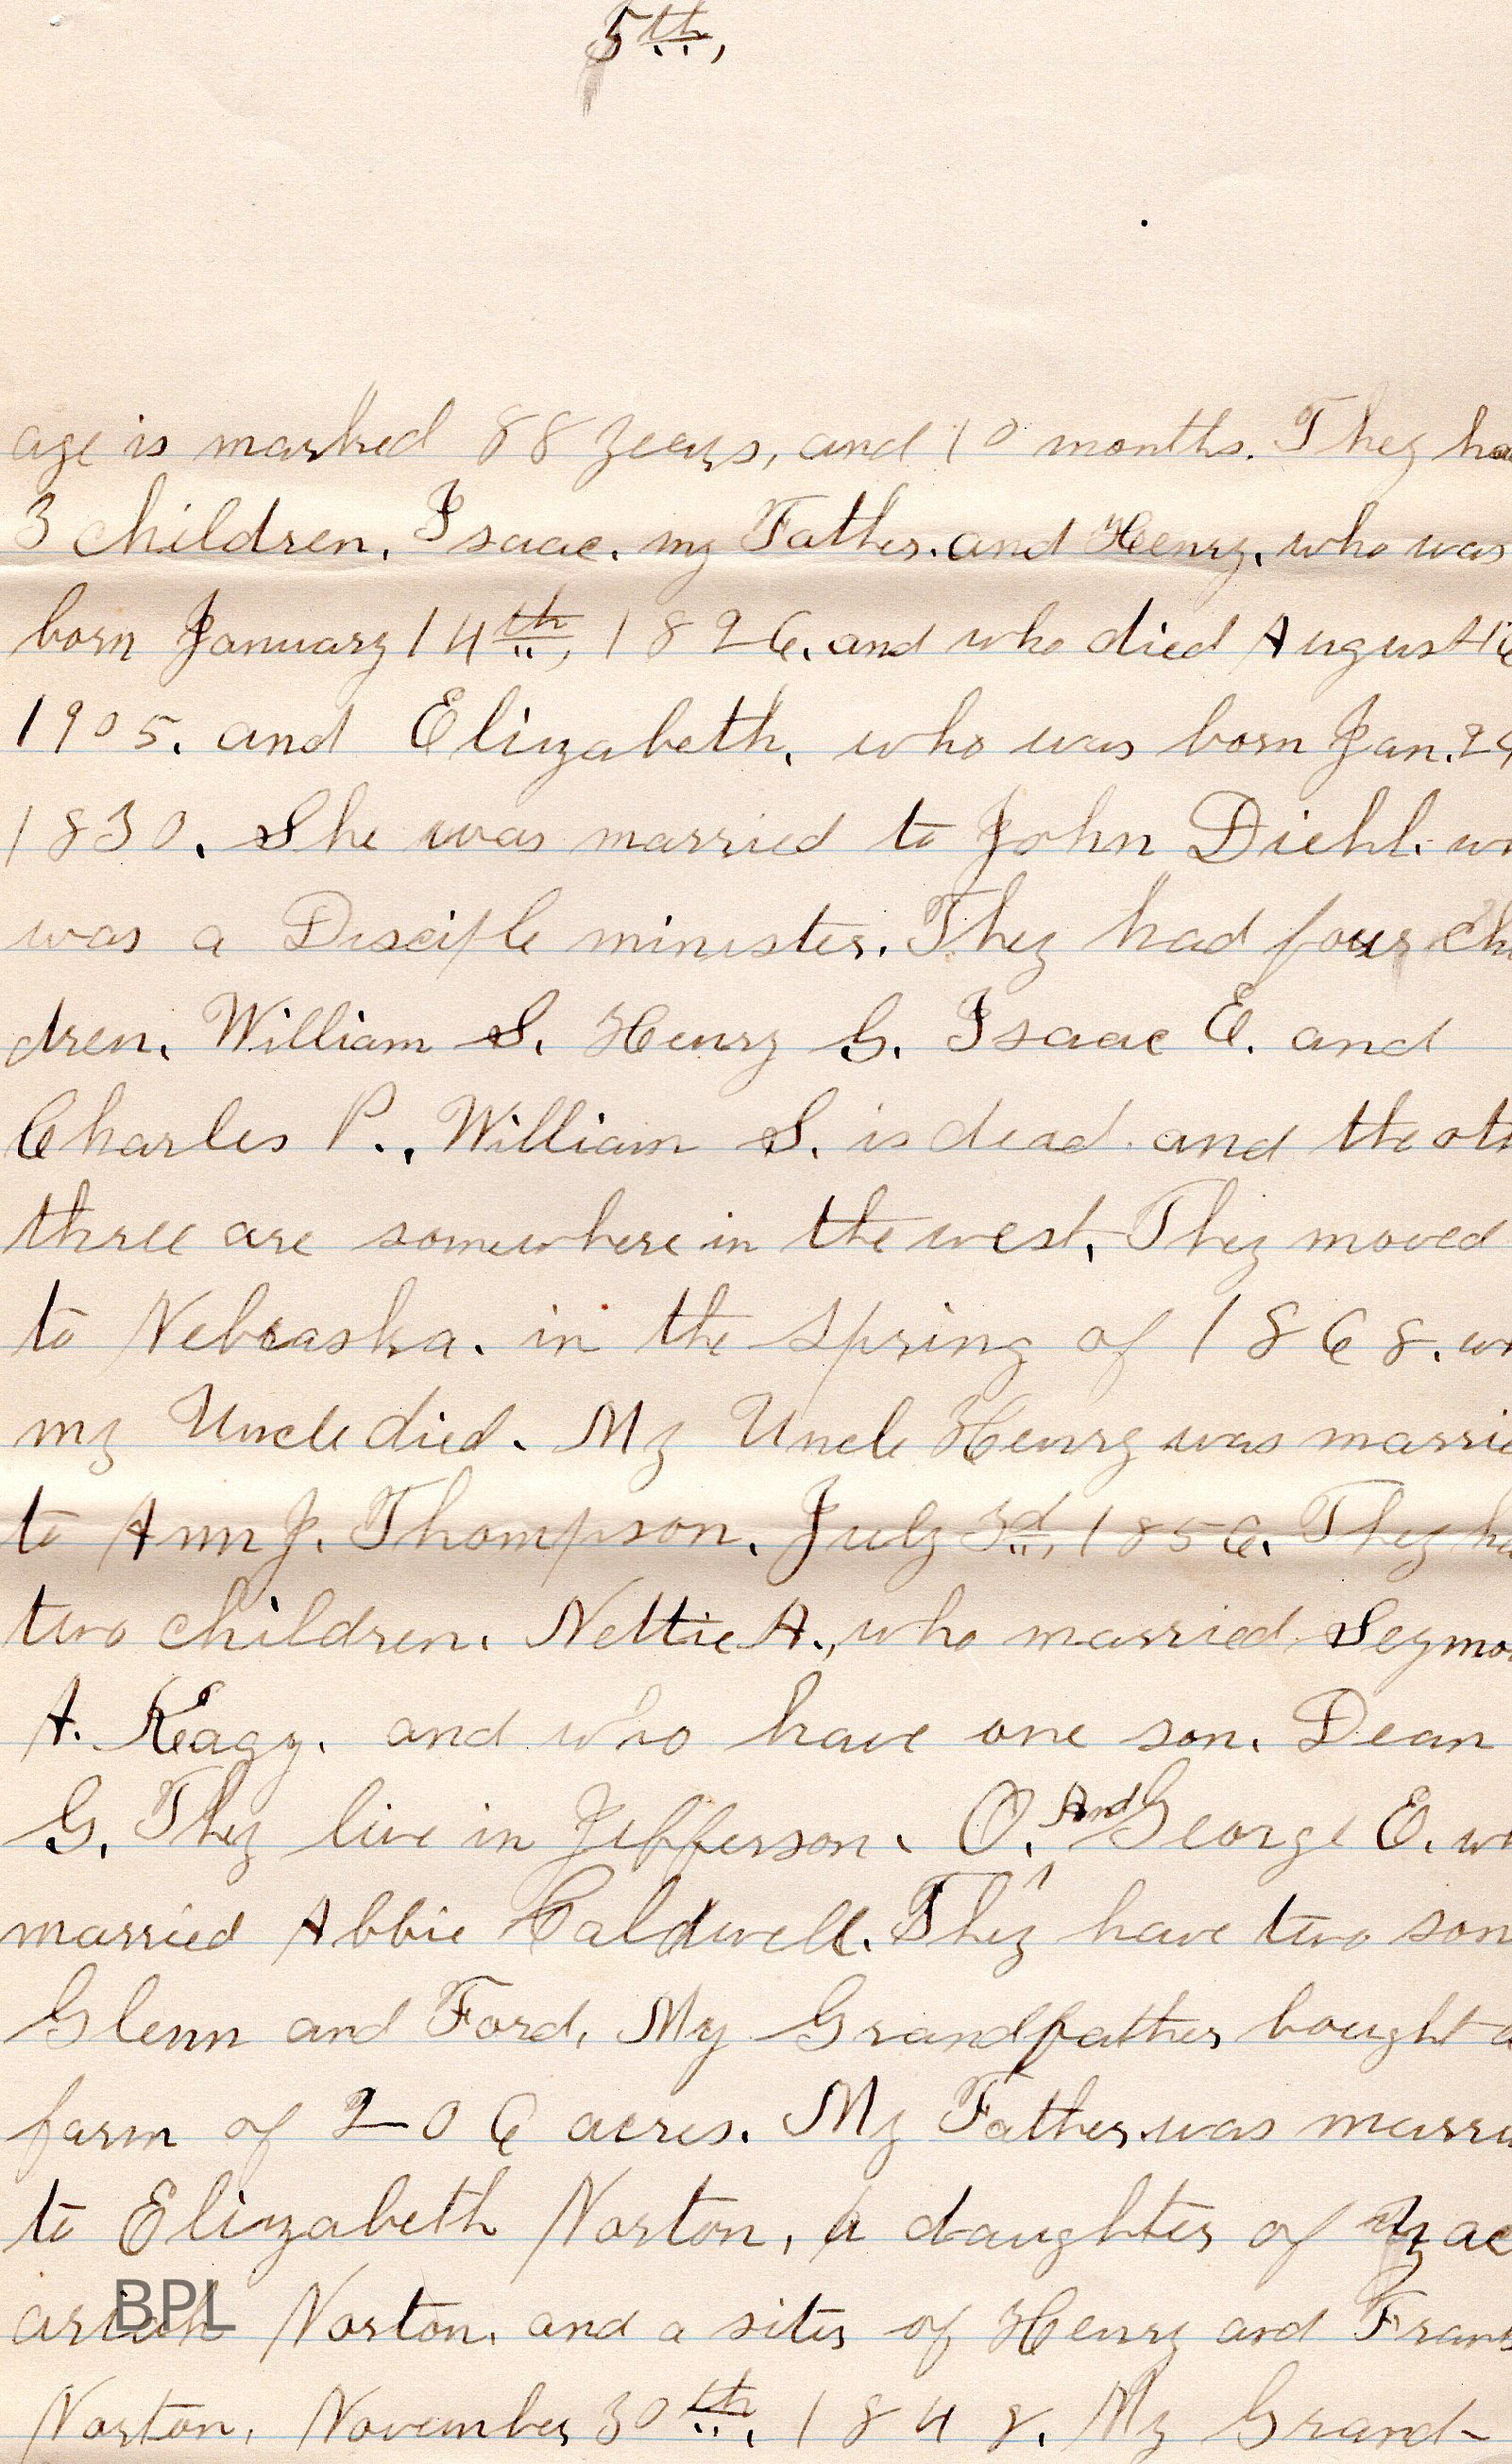 5th,
age is marked 88 years, and 10 months. They ha
3 children. Isaac. my Father. and Henry. who was
born January 14th, 1826. and who died August
1905. and Elizabeth. who was born Jan. 2
1830. She was married to John Diehl. w
was a Disciple minister. They had four chi
dren. William S. Henry G. Isaac E. and
Charles P., William S. is dead. and the oth
three are somewhere in the west. They moved
to Nebraska. in the spring of 1868. wh
my Uncle died. My Uncle Henry was marrie
to Ann J. Thompson. July 3d, 1856. They ha
two children. Nettie A., who married Seymo
A. Keagy. and who have one son. Dean
G. They live in Jefferson. O. And George E. wh
married Abbie Caldwell. They have two son
Glenn and Ford. My Grandfather bought a
farm of 206 acres. My Father was marri
to Elizabeth Norton, a daughter of Zac
ariah Norton. and a sites of Henry and Frank
Norton. November 30th, 1848. My Grand-
BPL